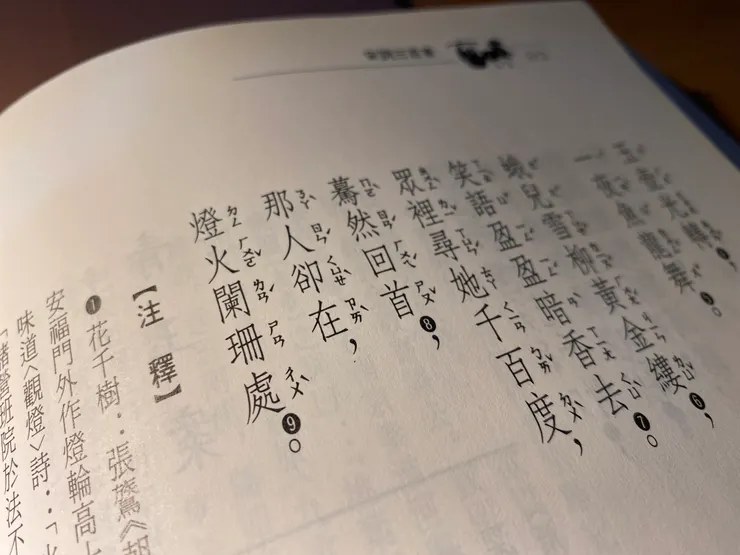 玉壺光轉，
一夜魚龍舞。
蛾兒雪柳黃金縷❻，
笑語盈盈暗香去❼。
眾裡尋她千百度，
驀然回首❽，
那人卻在，
燈火闌珊處❾。
【注 釋】
❶花千樹：張鷟《朝
安福門外作燈輪高十
味道〈觀燈〉詩：「火
「諸營班院於法不